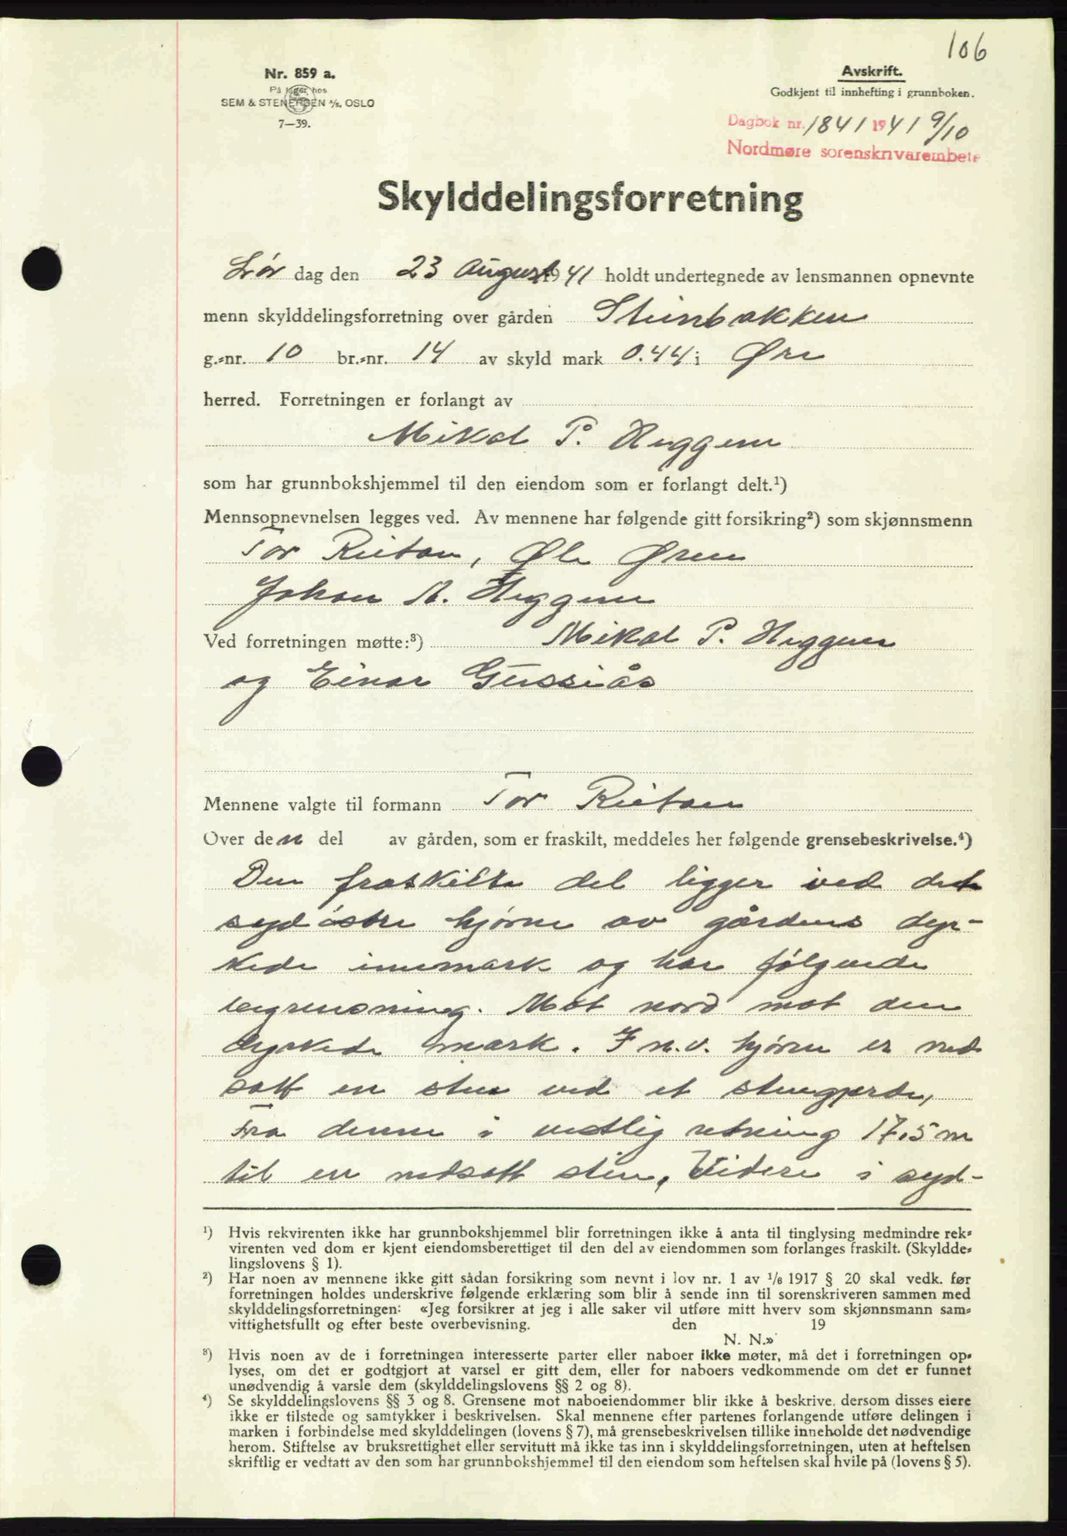 106
Nr. 859 a.
På lager hos
SEM & STENERSEN A/S, OSLO
7—39.
Avskrift.
Godkjent til innhefting i grunnboken.
Dagbok nr. 1841 1941 9/10
Nordmøre sorenskrivarembete
Skylddelingsforretning
Lør dag den 23 August 1941 holdt undertegnede av lensmannen opnevnte
menn skylddelingsforretning over gården Steinbakken
g.-nr. 10 br.-nr. 14 av skyld mark 0.44 i Øre
herred. Forretningen er forlangt av
Mikal P. Heggem
som har grunnbokshjemmel til den eiendom som er forlangt delt.¹)
Mennsopnevnelsen legges ved. Av mennene har følgende gitt forsikring²) som skjønnsmenn
Tor Reitan, Ole Øren
Johan A. Heggem
Ved forretningen møtte:³) Mikal P. Heggem
og Einar Gussiås
Mennene valgte til formann Tor Reitan
Over den del av gården, som er fraskilt, meddeles her følgende grensebeskrivelse.⁴)
Den fraskilte del ligger ved det
sydöstre hjørne av gårdens dyr-
kede innmark og har følgende
begrensning. Mot nord mot den
dyrkede mark. I n.v. hjørne er ned
satt en sten ved et stengjerde,
Fra denne i vestlig retning 17,5 m
til en nedsatt sten, Videre i syd-
¹) Hvis rekvirenten ikke har grunnbokshjemmel blir forretningen ikke å anta til tinglysing medmindre rek-
virenten ved dom er kjent eiendomsberettiget til den del av eiendommen som forlanges fraskilt. (Skyldde-
lingslovens § 1).
²) Har noen av mennene ikke gitt sådan forsikring som nevnt i lov nr. 1 av 1/6 1917 § 20 skal vedk. før
forretningen holdes underskrive følgende erklæring som blir å sende inn til sorenskriveren sammen med
skylddelingsforretningen: «Jeg forsikrer at jeg i alle saker vil utføre mitt hverv som skjønnsmann sam-
vittighetsfullt og efter beste overbevisning. den 19
N. N.»
³) Hvis noen av de i forretningen interesserte parter eller naboer ikke møter, må det i forretningen op-
lyses, om det er godtgjort at varsel er gitt dem, eller for naboers vedkommende om det er funnet
unødvendig å varsle dem (skylddelingslovens §§ 2 og 8).
⁴) Se skylddelingslovens §§ 3 og 8. Grensene mot naboeiendommer blir ikke å beskrive. dersom disses eiere
ikke er tilstede og samtykker i beskrivelsen. Skal mennene efter partenes forlangende utføre delingen i
marken i forbindelse med skylddelingen (lovens § 7), må grensebeskrivelsen tillike inneholde det nødvendige
herom. Stiftelse av bruksrettighet eller servitutt må ikke tas inn i skylddelingsforretningen, uten at heftelsen
skriftlig er vedtatt av den som har grunnbokshjemmel til den eiendom som heftelsen skal hvile på (lovens § 5).